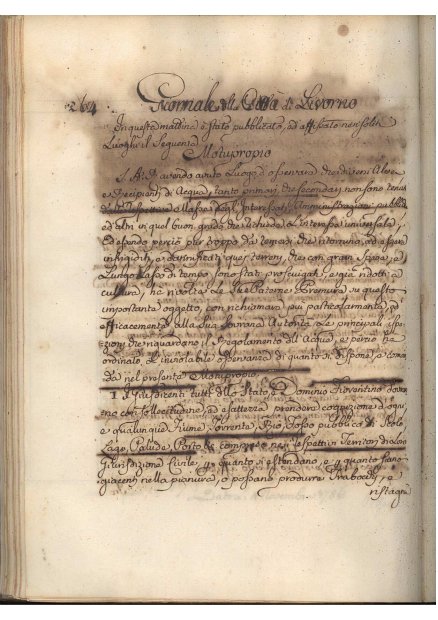 264. Giornale della Città di Livorno
In questa mattina è stato pubblicato, ed affissato nei soliti
Luoghi il Seguente
Motuproprio
S. A. R. avendo avuto Luogo d'osservare che diversi Alvei
e Recipienti di Acqua, tanto primari, che secondari non sono tenuti
dalle respettive e Interessati, Amministrazioni pubbliche
ed altri in quel buon grado che richiede L'interesse universale,
ed essendo perciò pur troppo da temersi che ritornino ad essere
infrigiditi, e danneggiati quei terreni, che con gran Spesa, e
Lungo Lasso di tempo sono stati prosciugati, e già ridotti a
cultura, ha rivolte Le Sue Paterne Premure su questo
importante oggetto, con richiamare più particolarmente, ed
efficacemente alla Sua Sovrana Autorità Le principali Ispe-
zioni che riguardano il Regolamento dell'Acque, e perciò ha
ordinato L'inviolabile osservanza di quanto si dispone, e coman-
da nel presente Motuproprio
I. I Giusdicenti tutti dello Stato, e Dominio Fiorentino dovran-
no che sollecitudine, ed esattezza prendere cognizione d'ogni,
e qualunque Fiume, Torrente, Rio, Fosso pubblico di Scolo
Lago, Palude, Porto compreso nei respettivi Territori di Loro
Giurisdizione Civile p. quanto si estendano, e p. quanto siano
giacenti nella pianura, o possano produrre Trabocchi, e
ristagni